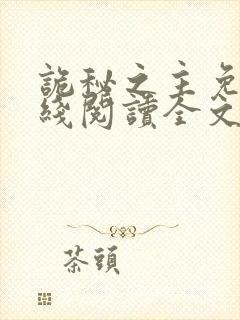 詭秘之主免
綫閱讀全文
茶頭